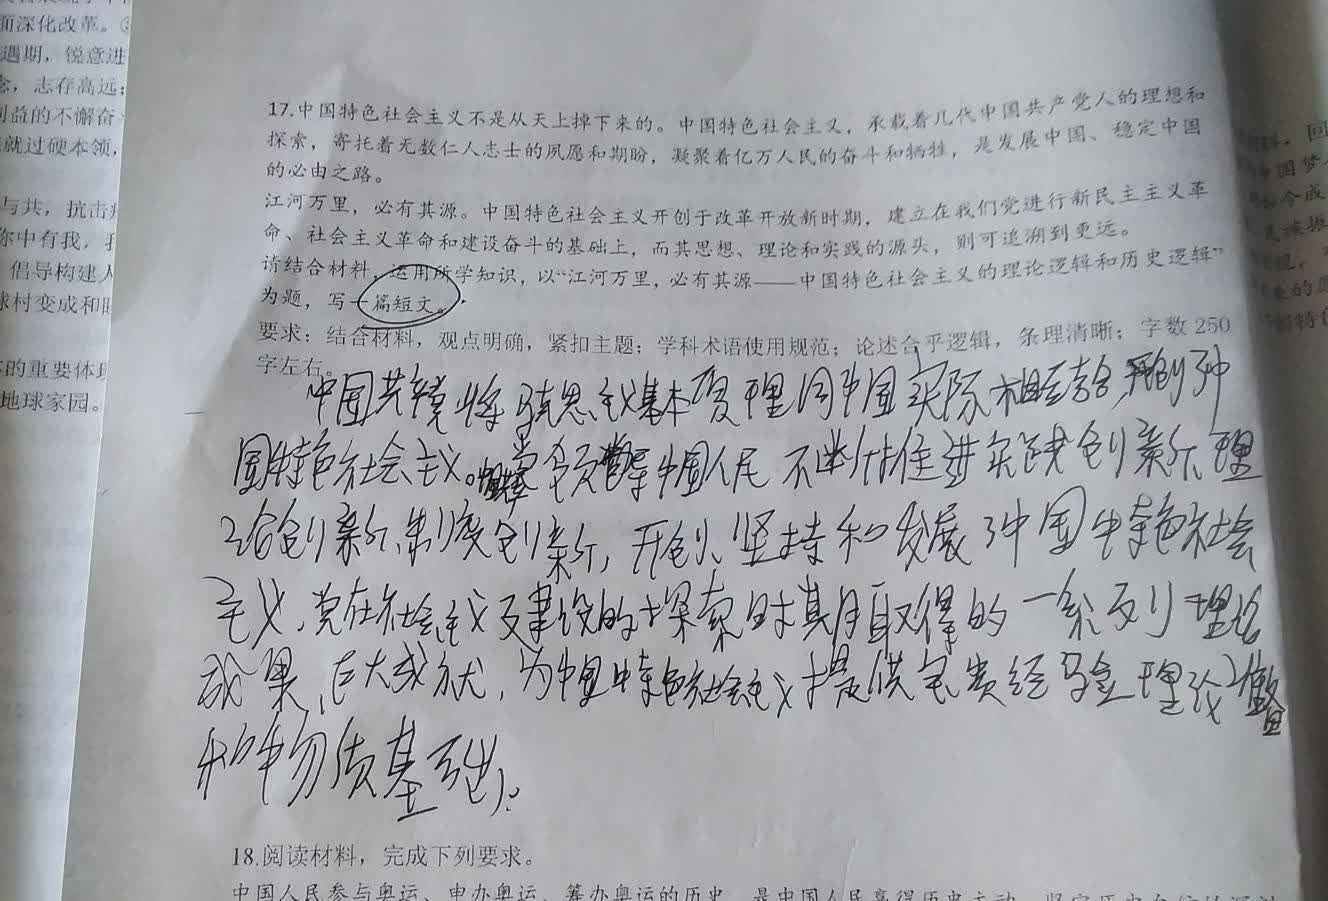 面深化改革。
遇期，锐意进
念，志存高远；
利益的不懈奋
就过硬本领，
与共，抗击
你中有我，
倡导构建人
球村变成和
的重要体现
地球家园。
17.中国特色社会主义不是从天上掉下来的。中国特色社会主义，承载着几代中国共产党人的理想和
探索，寄托着无数仁人志士的夙愿和期盼，凝聚着亿万人民的奋斗和牺牲，是发展中国、稳定中国
的必由之路。
江河万里，必有其源。中国特色社会主义开创于改革开放新时期，建立在我们党进行新民主主义革
命、社会主义革命和建设奋斗的基础上，而其思想、理论和实践的源头，则可追溯到更远。
请结合材料，运用所学知识，以“江河万里，必有其源——中国特色社会主义的理论逻辑和历史逻辑”
为题，写一篇短文。
要求：结合材料，观点明确，紧扣主题；学科术语使用规范；论述合乎逻辑，条理清晰；字数 250
字左右。
中国共产党将马克思主义基本原理同中国实际相结合，开创了中
国特色社会主义。党领导中国人民不断推进实践创新、理
论创新、制度创新，开创、坚持和发展了中国特色社会
主义，党在社会主义建设的探索时期取得的一系列理论
成果、巨大成就，为中国特色社会主义提供宝贵经验理论准备
和物质基础。
18.阅读材料，完成下列要求。
中国人民参与奥运、申办奥运、筹办奥运的历史，是中国人民赢得历史主动、坚定历史自信的